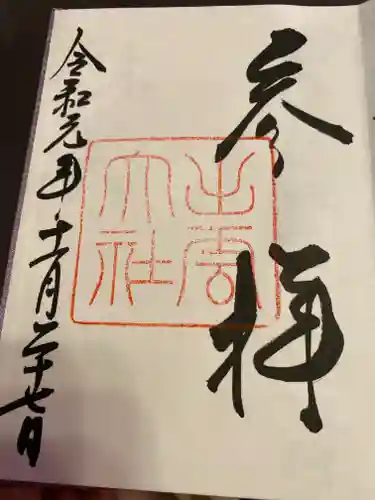 参拝
出雲大社
令和元年十一月二十七日